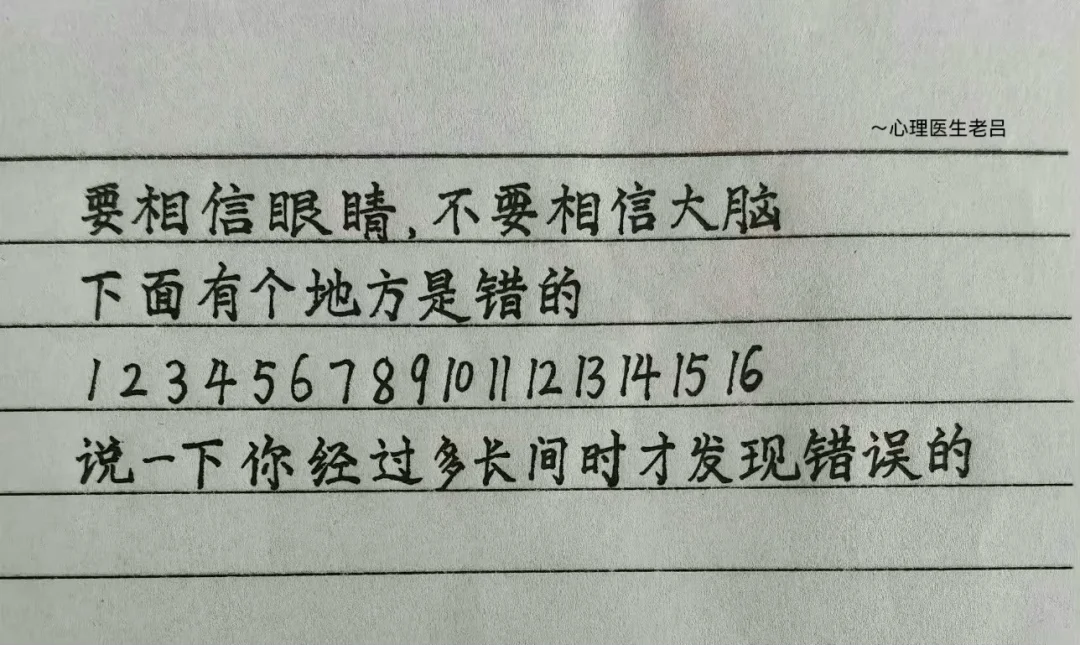 ~心理医生老吕
要相信眼睛,不要相信大脑
下面有个地方是错的
1 2 3 4 5 6 7 8 9 10 11 12 13 14 15 16
说一下你经过多长间时才发现错误的